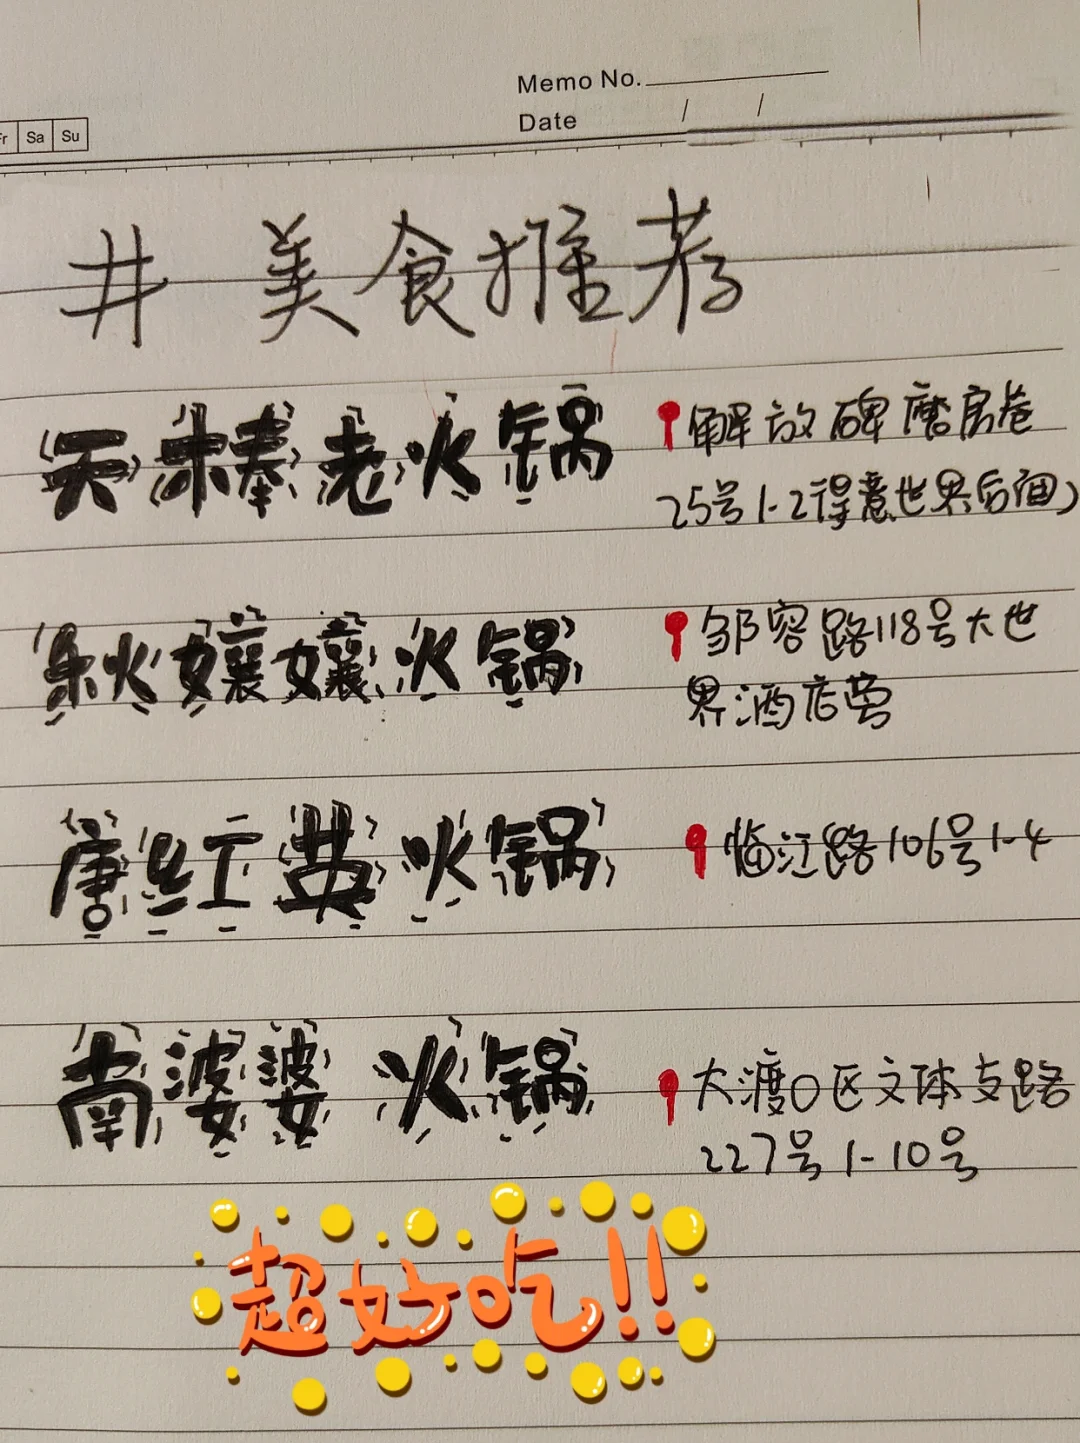 Fr Sa Su
Memo No.
Date / /
# 美食推荐
天棒老火锅 解放碑磨房巷
25号1-2得意世界后面)
秋孃孃火锅 邹容路118号大世
界酒店旁
唐红英火锅 临江路106号1-4
南婆婆火锅 大渡口区文体支路
227号1-10号
超好吃!!